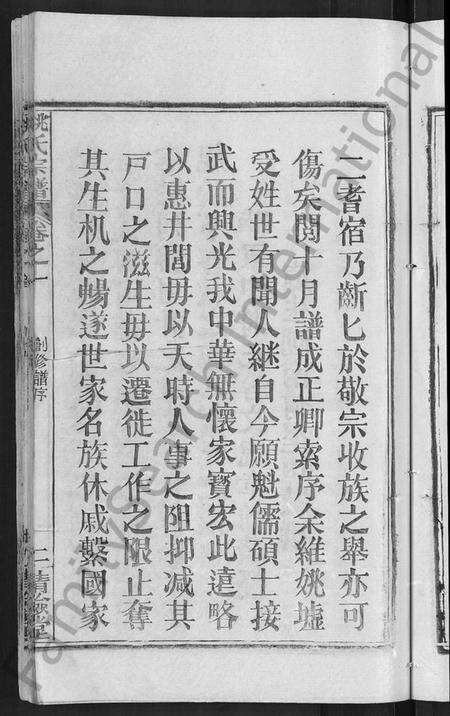 二耆宿乃齗匕於敬宗收族之舉亦可
傷矣閱十月譜成正卿索序余維姚墟
受姓世有聞人继自今願魁儒碩士接
武而興光我中華無懷家寳宏此遠略
以惠井閭毋以天時人事之阻抑减其
戸口之滋生毋以遷徙工作之限止奪
其生机之暢遂世家名族休戚繫國家
姚氏宗譜 卷之一
創修譜序
二
FamilySearch International